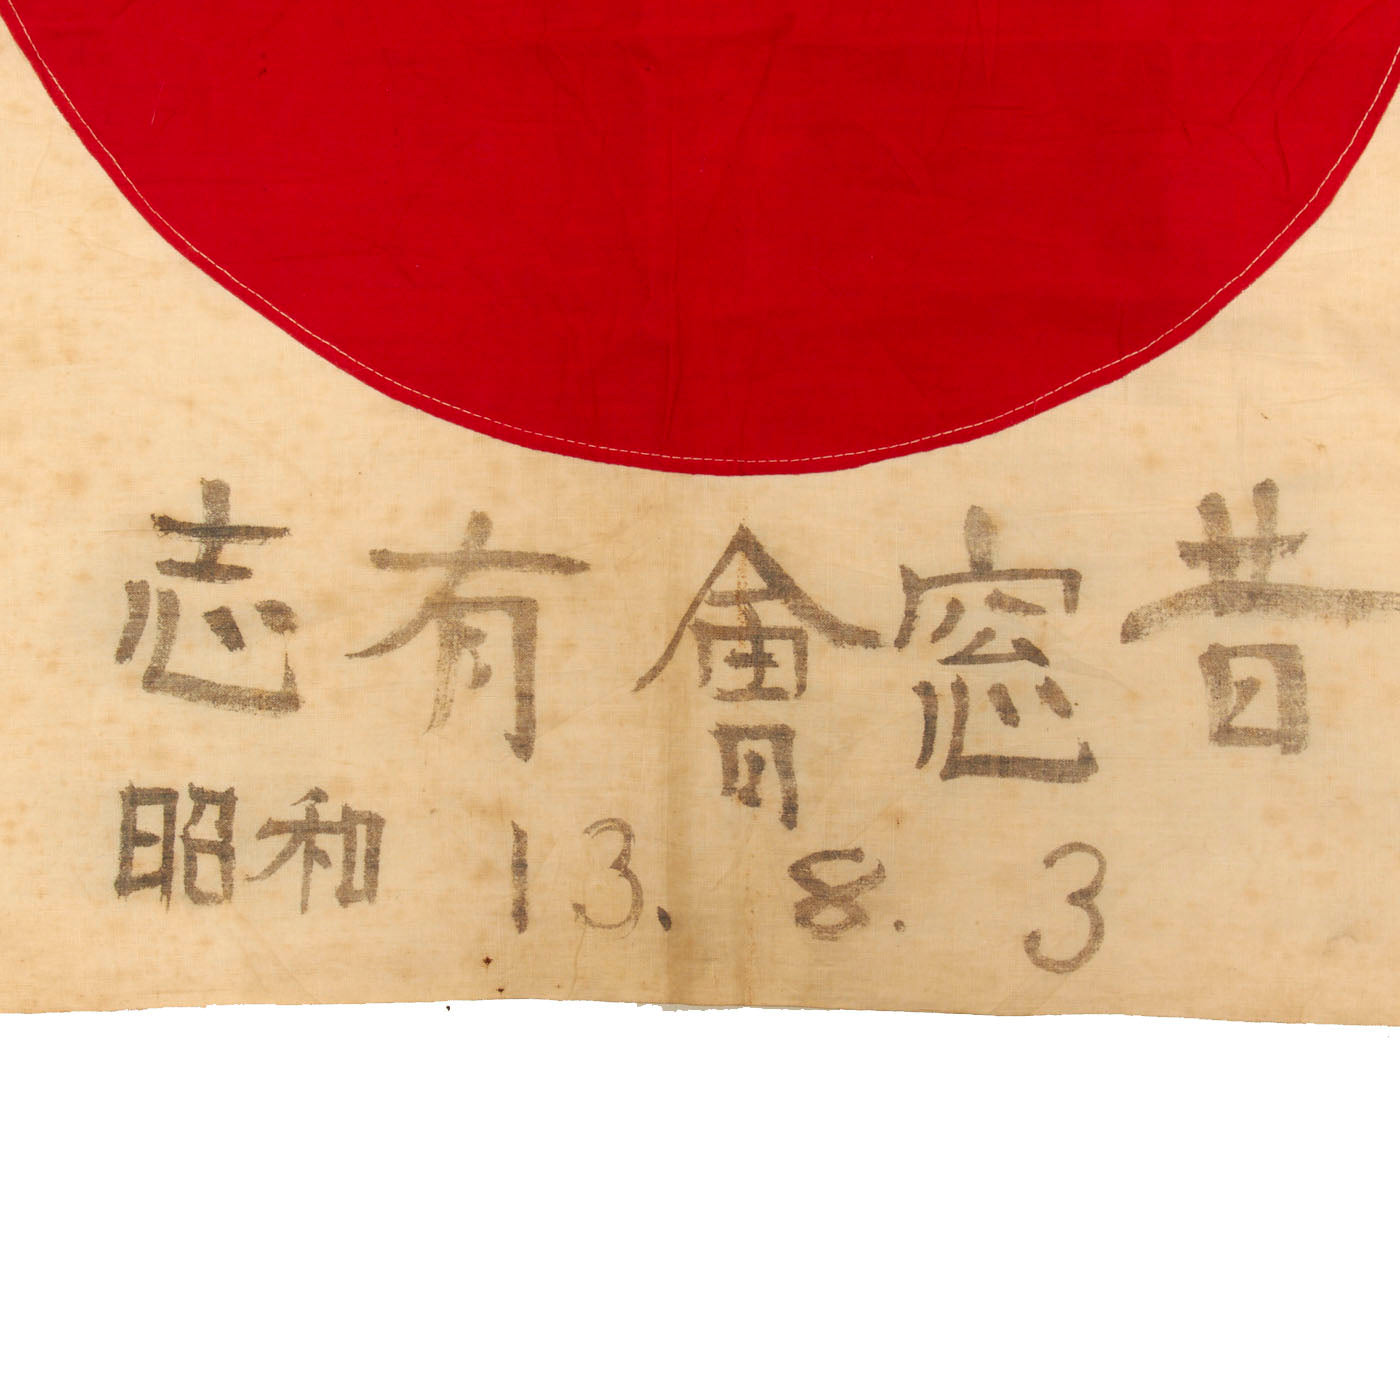 昔窓會有志
昭和13.8.3